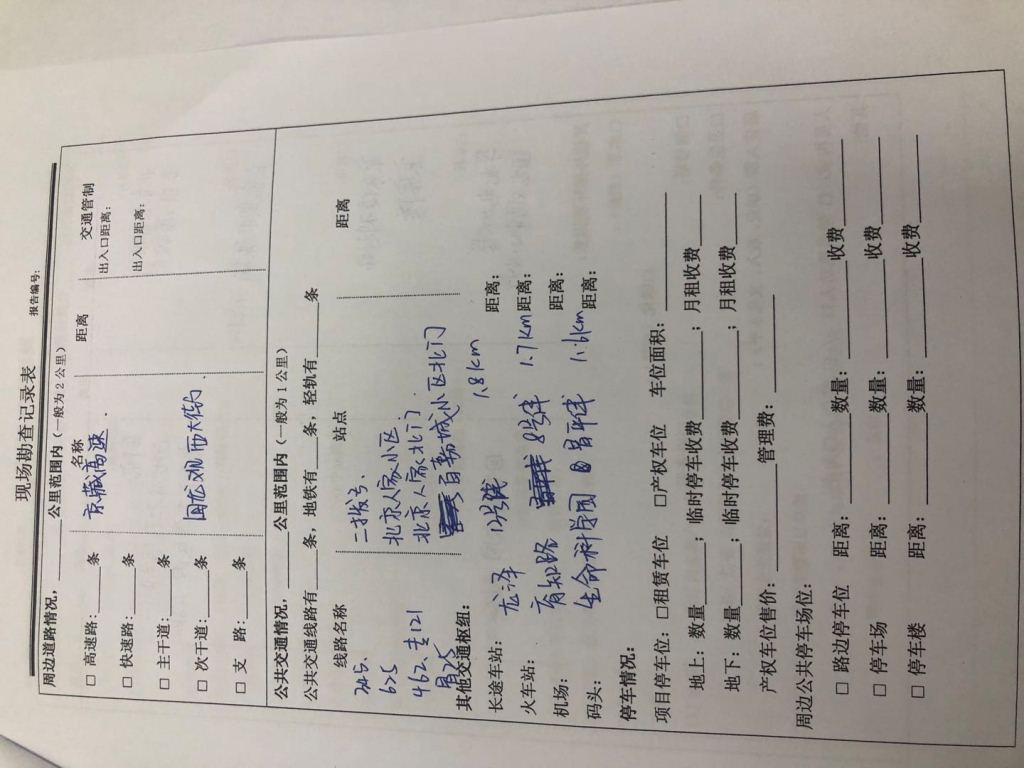 现场勘查记录表
报告编号:
周边道路情况，____公里范围内（一般为2公里）
名称 距离 交通管制
□ 高速路：____条 京藏高速 出入口距离：
□ 快速路：____条 出入口距离：
□ 主干道：____条
□ 次干道：____条 回龙观西大街
□ 支 路：____条
公共交通情况，____公里范围内（一般为1公里）
公共交通线路有____条，地铁有____条，轻轨有____条
线路名称 站点 距离
345. 二拨子.
625 北京人家小区
462. 专121 北京人家北门.
昌25 百嘉城小区北门
其他交通枢纽： 1.8km
长途车站： 龙泽 13号线 距离：
火车站： 育知路 8号线 1.7km 距离：
机场： 距离：
码头： 生命科学园 昌平线 1.6km 距离：
停车情况：
项目停车位：□租赁车位 □产权车位 车位面积：____
地上：数量____；临时停车收费____；月租收费____
地下：数量____；临时停车收费____；月租收费____
产权车位售价：____管理费：____
周边公共停车场位：
□ 路边停车位 距离：____数量：____收费____
□ 停车场 距离：____数量：____收费____
□ 停车楼 距离：____数量：____收费____